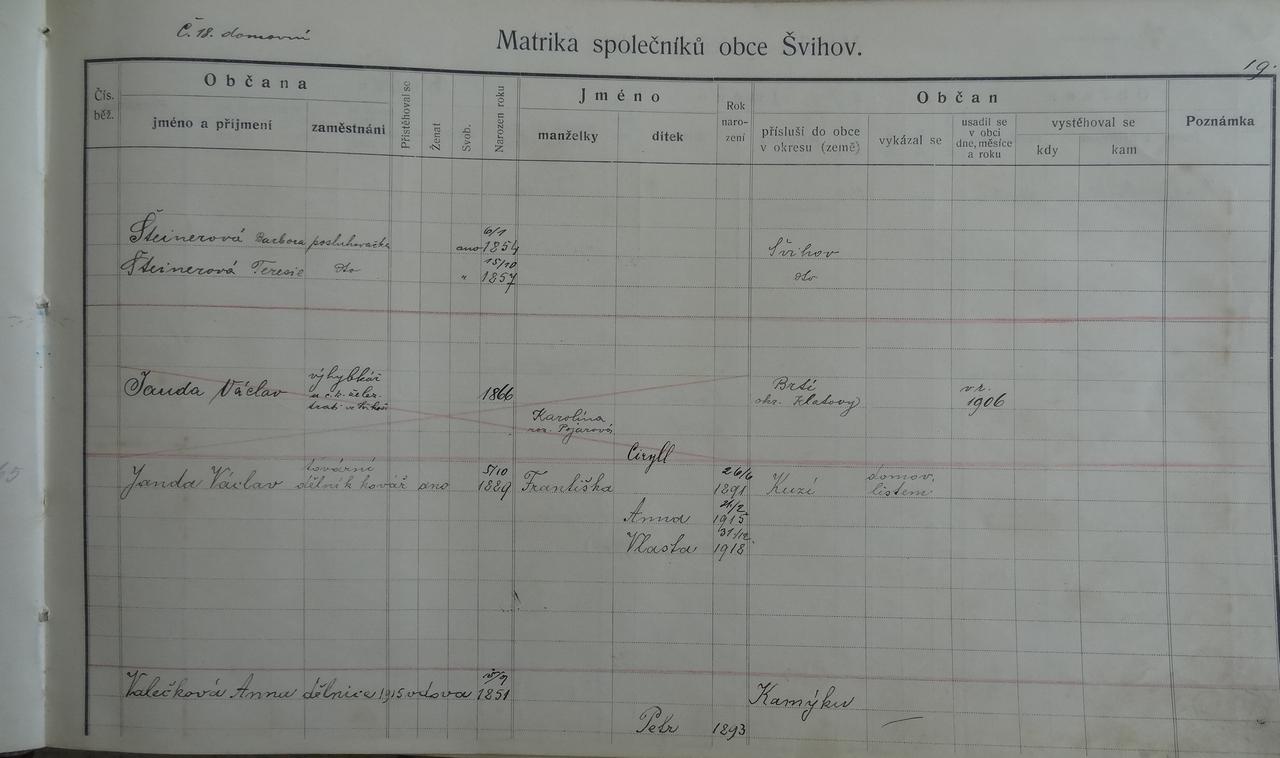 Č. 18. domovní
Matrika společníků obce Švihov.
19.
Občana
Jméno
Občan
Čís. běž.
jméno a přijmení
zaměstnání
Přistěhoval se
Ženat
Svob.
Narozen roku
manželky
dítek
Rok naro- zení
přísluší do obce v okresu (země)
vykázal se
usadil se v obci dne, měsíce a roku
vystěhoval se
kdy
kam
Poznámka
6/1
Šteinerová Barbora posluhovačka ano 1854 Švihov
15/10
Šteinerová Teresie dto " 1857 dto
výhybkář
Janda Václav 1866 Brtí v r.
okr. Klatovy 1906
Karolína
roz. Pojarová
Cyrill
tovární 5/10 26/6 domov.
Janda Václav dělník kovář ano 1889 Františka 1891 Kuzí listem
Anna 1915
31/12
Vlasta 1918
Valečková Anna dělnice 1915 vdova 1851 Kamýku
Petr 1893